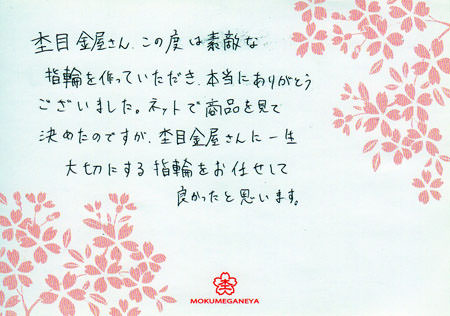 杢目金屋さん、この度は素敵な
指輪を作っていただき、本当にありがとう
ございました。ネットで商品を見て
決めたのですが、杢目金屋さんに一生
大切にする指輪をお任せして
良かったと思います。
MOKUMEGANEYA